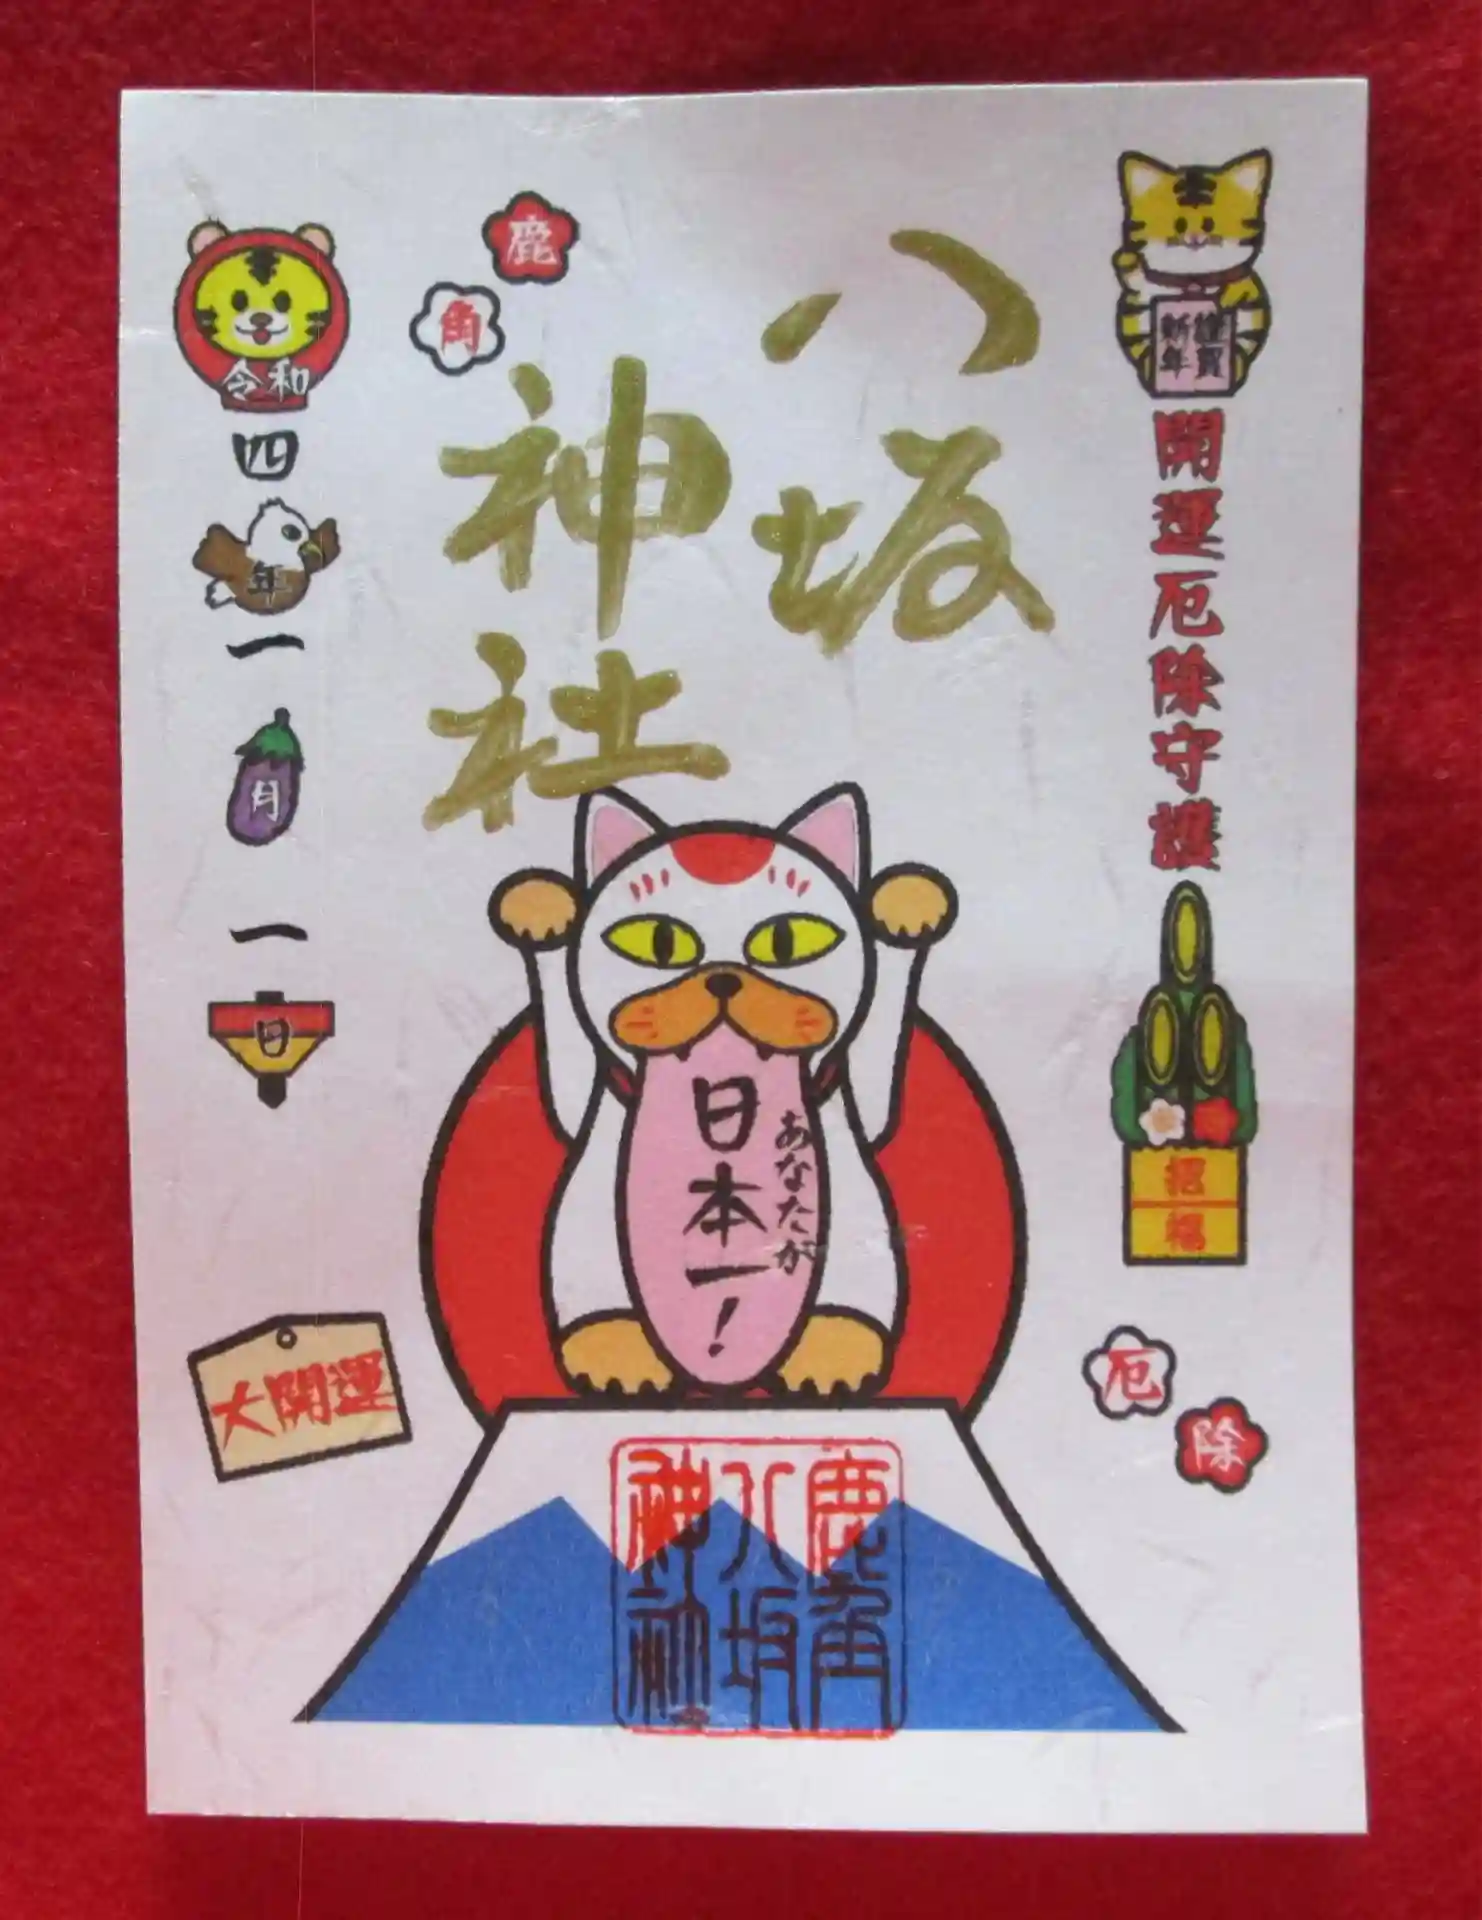 謹賀
新年
開運厄除守護
招福
厄除
八坂
神社
鹿角
あなたが
日本一!
鹿角
八坂
神社
令和四年一月一日
大開運